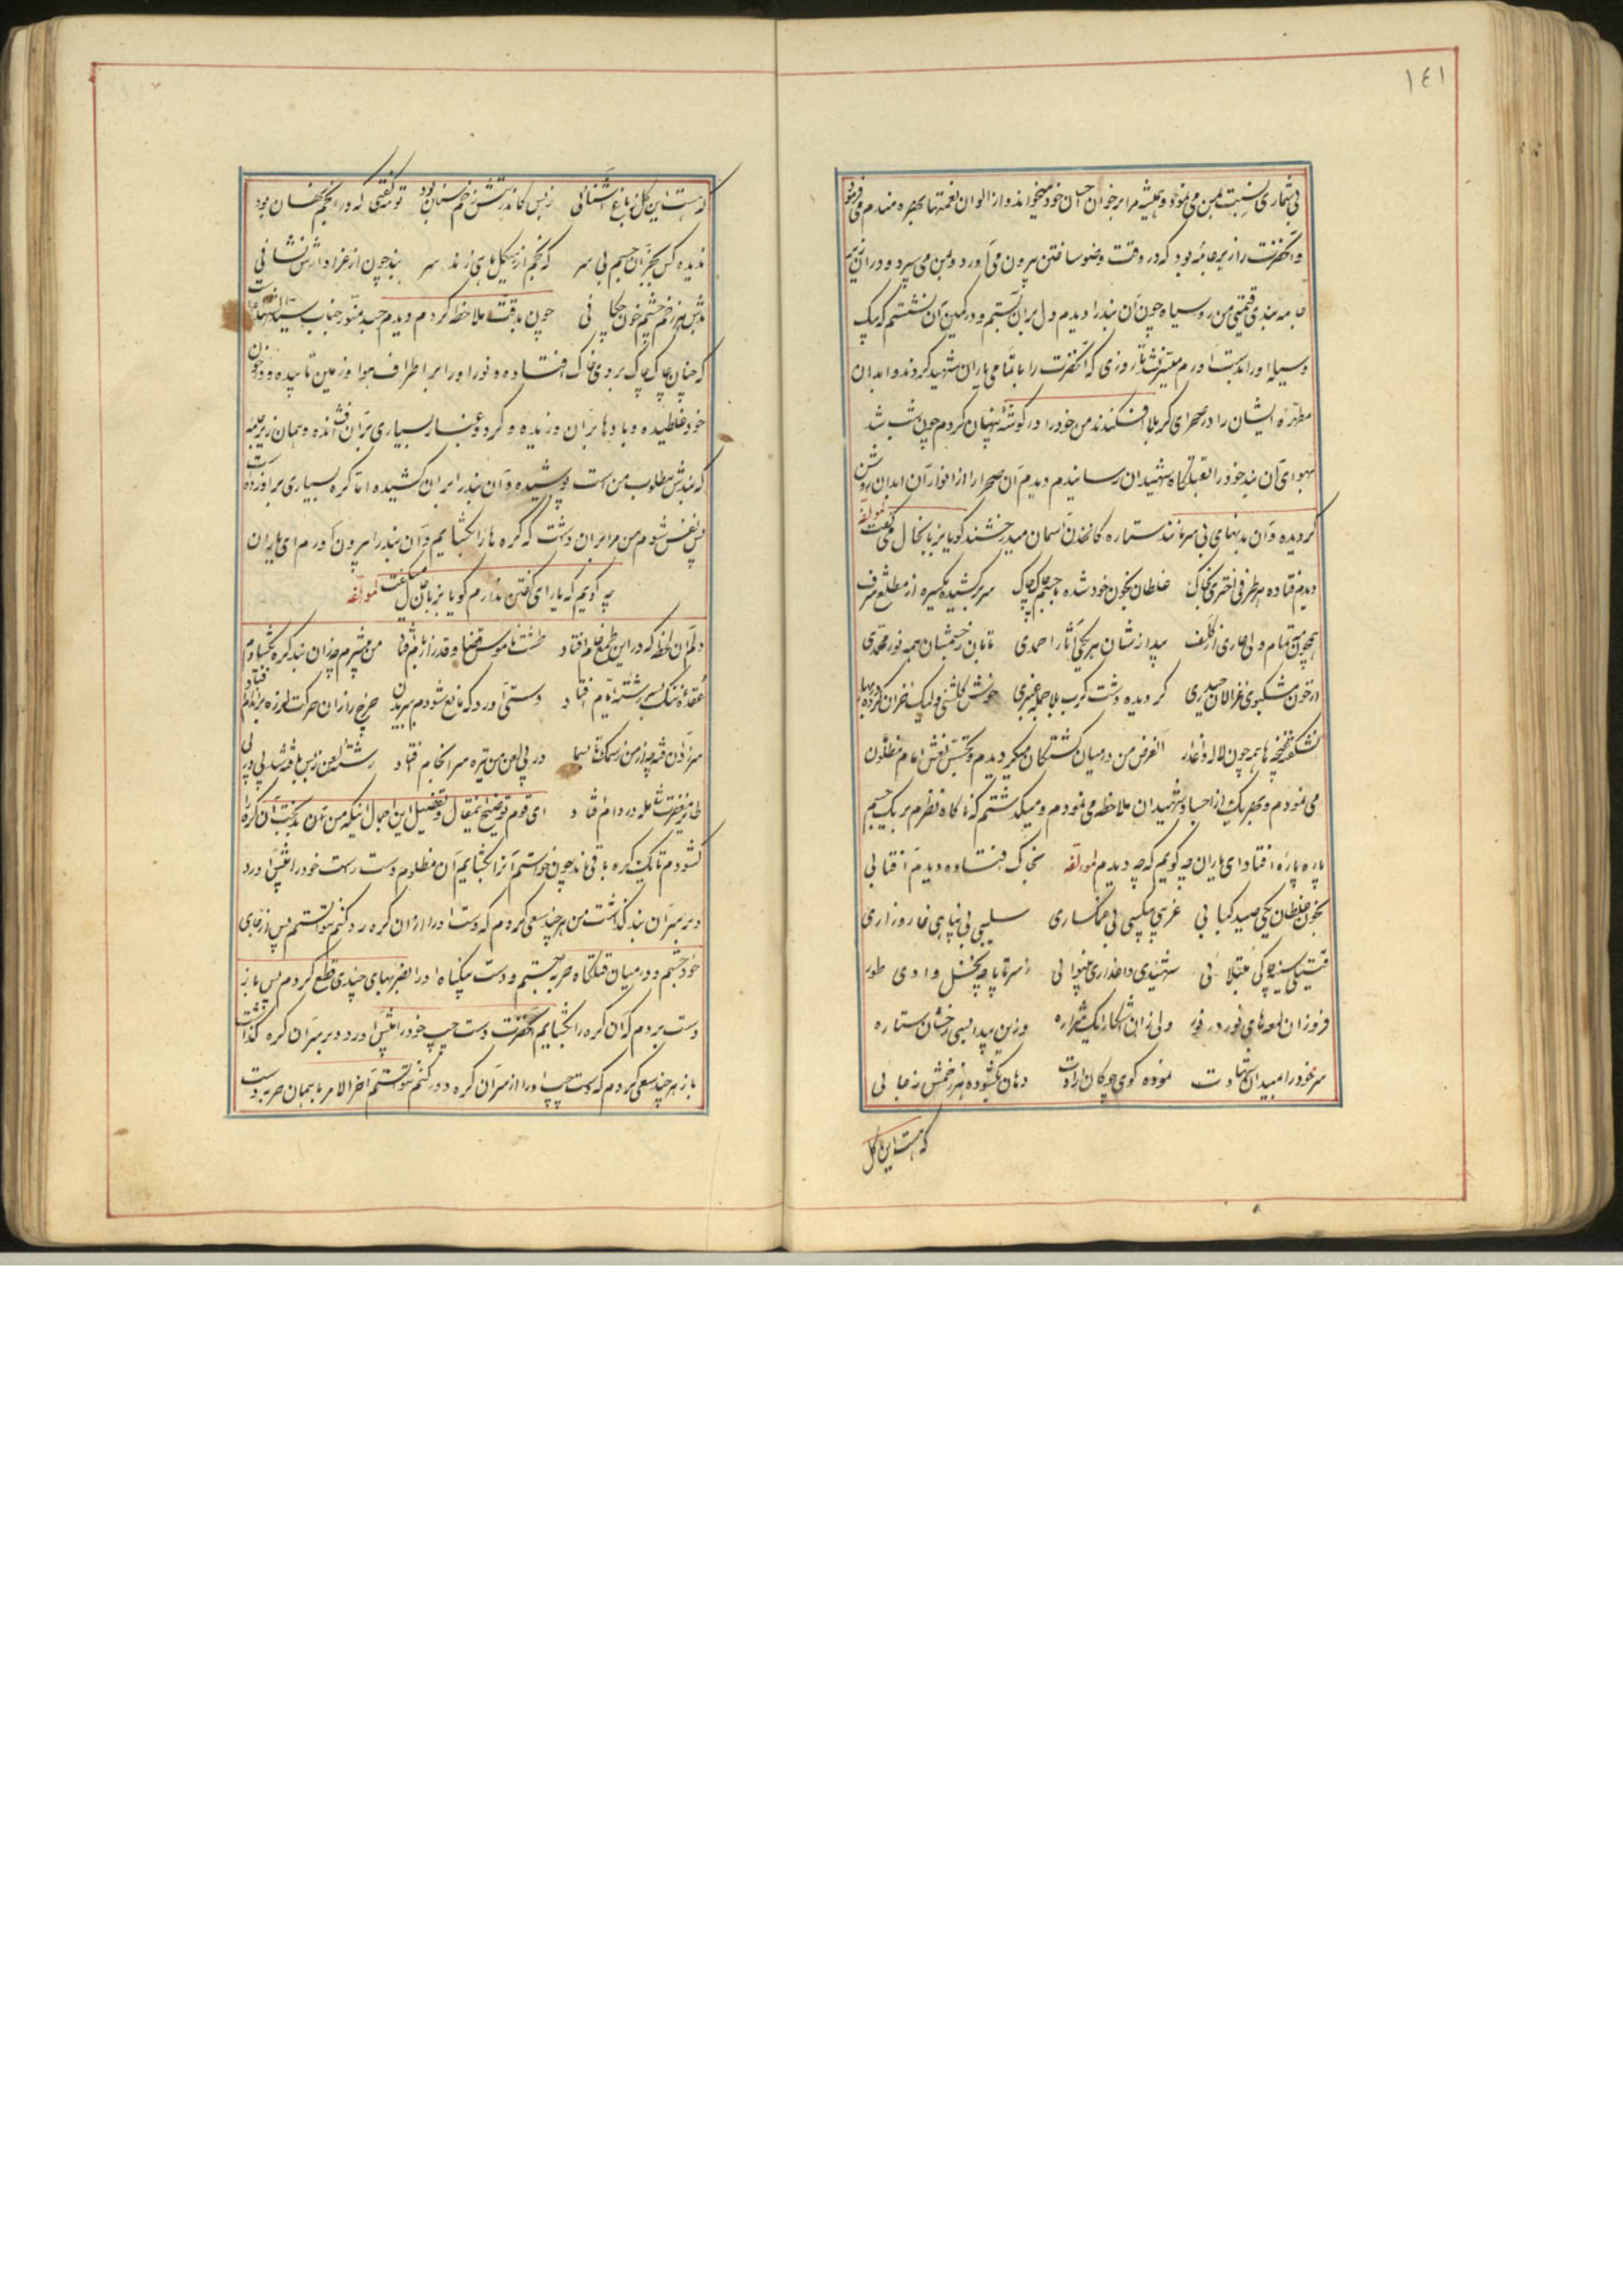 ١٤١
بی‌شماری نسبت بمن می‌نمود و همیشه مرا بر خوان احسان خود میخواند و از الوان نعمتها بهره‌مندم می‌فرمود
و آنحضرت را زیر جامه بود که در وقت وضو ساختن بیرون می‌آورد و بمن می‌سپرد و در آن زیر
جامه بندی قیمتی من روسیاه چون آن بند را دیدم دل بر آن بستم و در کمین آن نشستم که بیک
وسیله او را بدست آورم میسر نشد تا روزی که آنحضرت را با تمامی یاران شهید کردند و ابدان
مطهره ایشان را در صحرای کربلا افکندند من خود را در گوشهٔ پنهان کردم چون شب شد
بهوای آن بند خود را بقتلگاه شهیدان رسانیدم دیدم آن صحرا را از انوار آن ابدان روشن
گردیده و آن بدنهای بی سر مانند ستاره کانه آسمان میدرخشند گویا بزبان حال می‌گفت لمؤلفه
دیدم فتاده هر طرفی اختری بخاک غلطان بخون خود شده با جسم چاک چاک سر برکشیده یکسره از مطلع شرف
همچون مه تمام ولی عاری از کلف پیدا ز شان هر یکی آثار احمدی تابان ز جسمشان همه نور محمدی
از خون مشکبوی غزالان حیدری گردیده دشت کرب بلا جمله عنبری خوش گلشنی ولیک خزان کرده بهار
نشکفته غنچه‌ها همه چون لاله داغدار الغرض من در میان کشتگان میگردیدم و تجسس نعش امام مظلوم
می‌نمودم و بهر یک از اجساد شهیدان ملاحظه می‌نمودم و میگذشتم که ناگاه نظرم بر یک جسم
پاره پاره افتاد ای یاران چه گویم که چه دیدم لمؤلفه بخاک افتاده دیدم آفتابی
بخون غلطان یکی صید کبابی غریبی بیکسی بی غمگساری سلیبی بی پناهی خار و زاری
قتیلی سینه چاکی مبتلائی شهیدی داغداری بینوائی ز سر تا پا چه نخل وادی طور
فروزان لمعه‌های نور در نور ولی زان آشکارا یک شراره وزین پیدا بسی رخشان ستاره
سر خود را بمیدان شهادت نموده گوی چوگان ارادت دهان بگشوده هر زخمش ز جائی
که هست این گل
که هست این گل ز باغ آشنائی ز بس کاندر تنش زخم سنان بود تو گفتی که در انجم نهان بود
ندیده کس بجز آن جسم بی سر که انجم از هیکل ماهی زند سر بند چون از غزا دارش نشانی
بدش هر زخم چشم خون چکانی چون بدقت ملاحظه کردم دیدم جسد منور جناب سید الشهداست
که چنان چاک چاک بر روی خاک افتاده و نور او را بر اطراف هوا و زمین تابیده و در خون
خود غلطیده و بادها بر آن وزیده و گرد و غبار بسیاری بر آن فشانده و همان زیر جامه
که بندش مطلوب من است پوشیده و آن بند را بر آن کشیده اما گره بسیاری بر او زده است
پس نفس شوم من مرا بر آن داشت که گره‌ها را بگشایم و آن بند را بیرون آورم ای یاران
چه گویم که یارای گفتن ندارم گویا بزبان حال میگفت لمؤلفه
دلم آن لحظه که در این طمع خام افتاد طشت ناموس قضا و قدر از بام فتاد من بیشرم چه زان بند گره بگشادم
عقدهٔ ننگ بسر رشتهٔ ایام فتاد دستی آورد که مانع شودم سر بدن چرخ را زان حرکت لرزه بر اندام فتاد
سر زد آن فتنه چه از من ز سمک تا بسما در پی لعن من تیره سرانجام فتاد رشتهٔ لعن ز بس بافته شد پی در پی
طایر مغفرتش عامله در دام فتاد ای قوم توضیح اینمقال و تفصیل این اجمال اینکه من دون بدبخت آن گره را
گشودم تا یک گره باقی ماند چون خواستم آنرا بگشایم آن مظلوم دست راست خود را پیش آورد
و بر سر آن بند گذاشت من هر چند سعی کردم که دست او را از آن گره رد کنم نتوانستم پس از جای
خود جستم و در میان قتلگاه حربه جستم و دست بیگناه او را بضربهای چندی قطع کردم پس باز
دست بردم که آن گره را بگشایم آنحضرت دست چپ خود را پیش آورد و بر سر آن گره گذاشت
باز هر چند سعی کردم که دست چپ او را از سر آن گره دور کنم نتوانستم آخر الامر با همان حربه دست